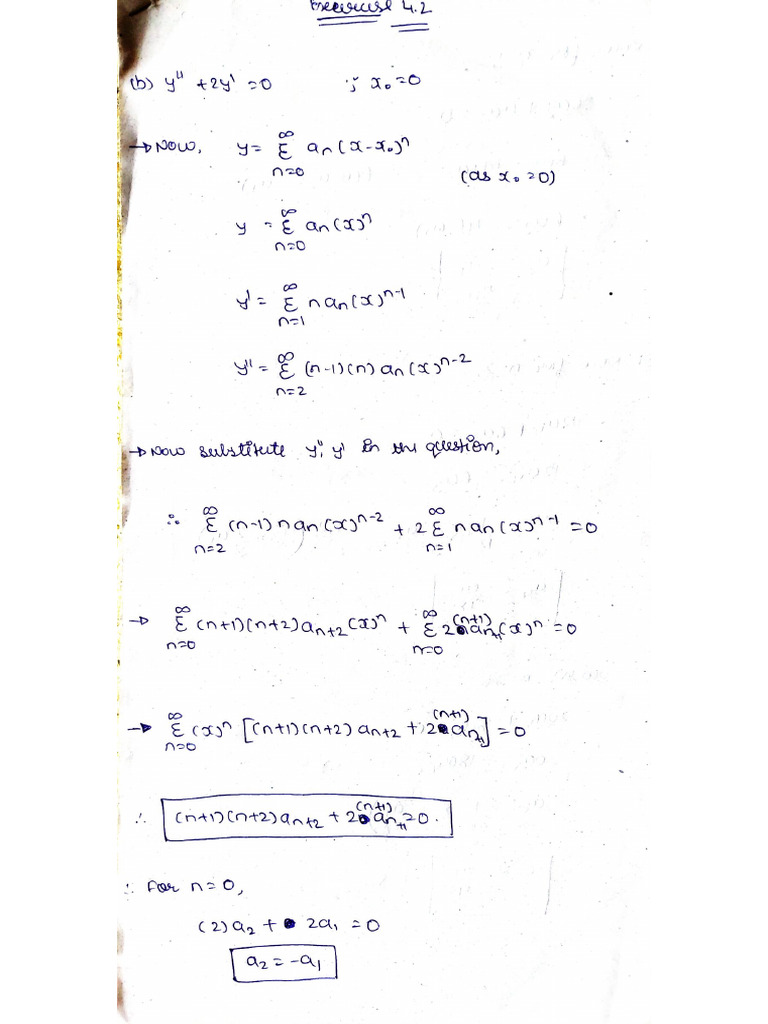 Exercise 4.2
(b) y'' + 2y' = 0 ; x₀ = 0
→ Now, y = Σ_{n=0}^{∞} aₙ(x-x₀)ⁿ
(as x₀ = 0)
y = Σ_{n=0}^{∞} aₙ(x)ⁿ
y' = Σ_{n=1}^{∞} n aₙ(x)ⁿ⁻¹
y'' = Σ_{n=2}^{∞} (n-1)(n) aₙ(x)ⁿ⁻²
→ Now substitute y'', y' in the question,
∴ Σ_{n=2}^{∞} (n-1) n aₙ(x)ⁿ⁻² + 2 Σ_{n=1}^{∞} n aₙ(x)ⁿ⁻¹ = 0
→ Σ_{n=0}^{∞} (n+1)(n+2) aₙ₊₂ (x)ⁿ + Σ_{n=0}^{∞} 2(n+1) aₙ₊₁(x)ⁿ = 0
→ Σ_{n=0}^{∞} (x)ⁿ [(n+1)(n+2) aₙ₊₂ + 2(n+1) aₙ₊₁] = 0
∴ (n+1)(n+2) aₙ₊₂ + 2(n+1) aₙ₊₁ = 0.
∴ For n = 0,
(2) a₂ + 2a₁ = 0
a₂ = -a₁